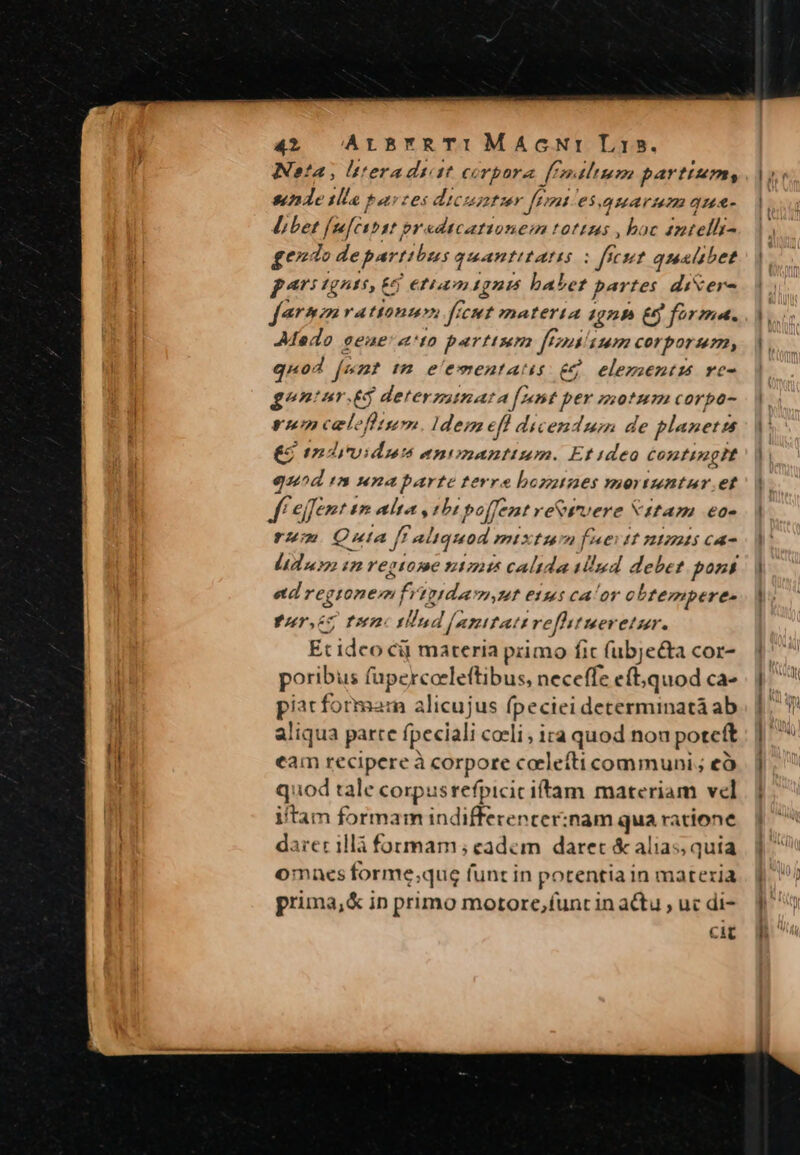 42 ALBERTI MAGNI LIB.
Nota, litera dicit corpora similium partium,
unde illa partes dicuntur simi'es, quarum qua-
libet suscipit prædicationem totius, hoc intelli-
gendo de partibus quantitatis : sicut quælibet
pars ignis, & etiam ignis habet partes diver-
sarum rationum sicut materia ignis & forma.
Modo gene'a'io partium simi'ium corporum,
quod sunt in e'ementatis & elementis re-
guntur, & determinata sunt per motum corpo-
rum cælestium. Idem est dicendum de planetis
& individuis animantium. Et ideo contingit
quod in una parte terræ homines moriuntur, et
si essent in alia, ibi possent revivere vitam eo-
rum. Quia si aliquod mixtum fuerit nimis ca-
lidum in regione nimis calida illud debet poni
ad regionem frigidam, ut eius ca'or obtempere-
tur, & tunc illud sanitati restitueretur.
Et ideo cū materia primo sic subjecta cor-
poribus supercœlestibus, necesse est, quod ca-
piat formam alicujus speciei determinatā ab
aliqua parte speciali cœli, ita quod non potest
eam recipere à corpore cœlesti communi; eò
quod tale corpus respicit istam materiam vel
istam formam indifferenter: nam qua ratione
daret illā formam; eadem daret & alias, quia
omnes forme, que sunt in potentia in materia
prima, & in primo motore, sunt in actu, ut di-
cit